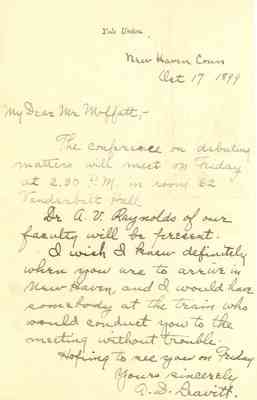 Yale Union.
New Haven Conn
Oct 17 1899
My Dear Mr. Moffatt,-
The conference on debating
matters will meet on Friday
at 2.30 P.M. in room 62
Vanderbilt Hall
Dr A. V. Raynolds of our
faculty will be present.
I wish I knew definitely
when you are to arrive in
New Haven, and I would have
somebody at the train who
would conduct you to the
meeting without trouble.
Hoping to see you on Friday
Yours sincerely
A. D. Leavitt.